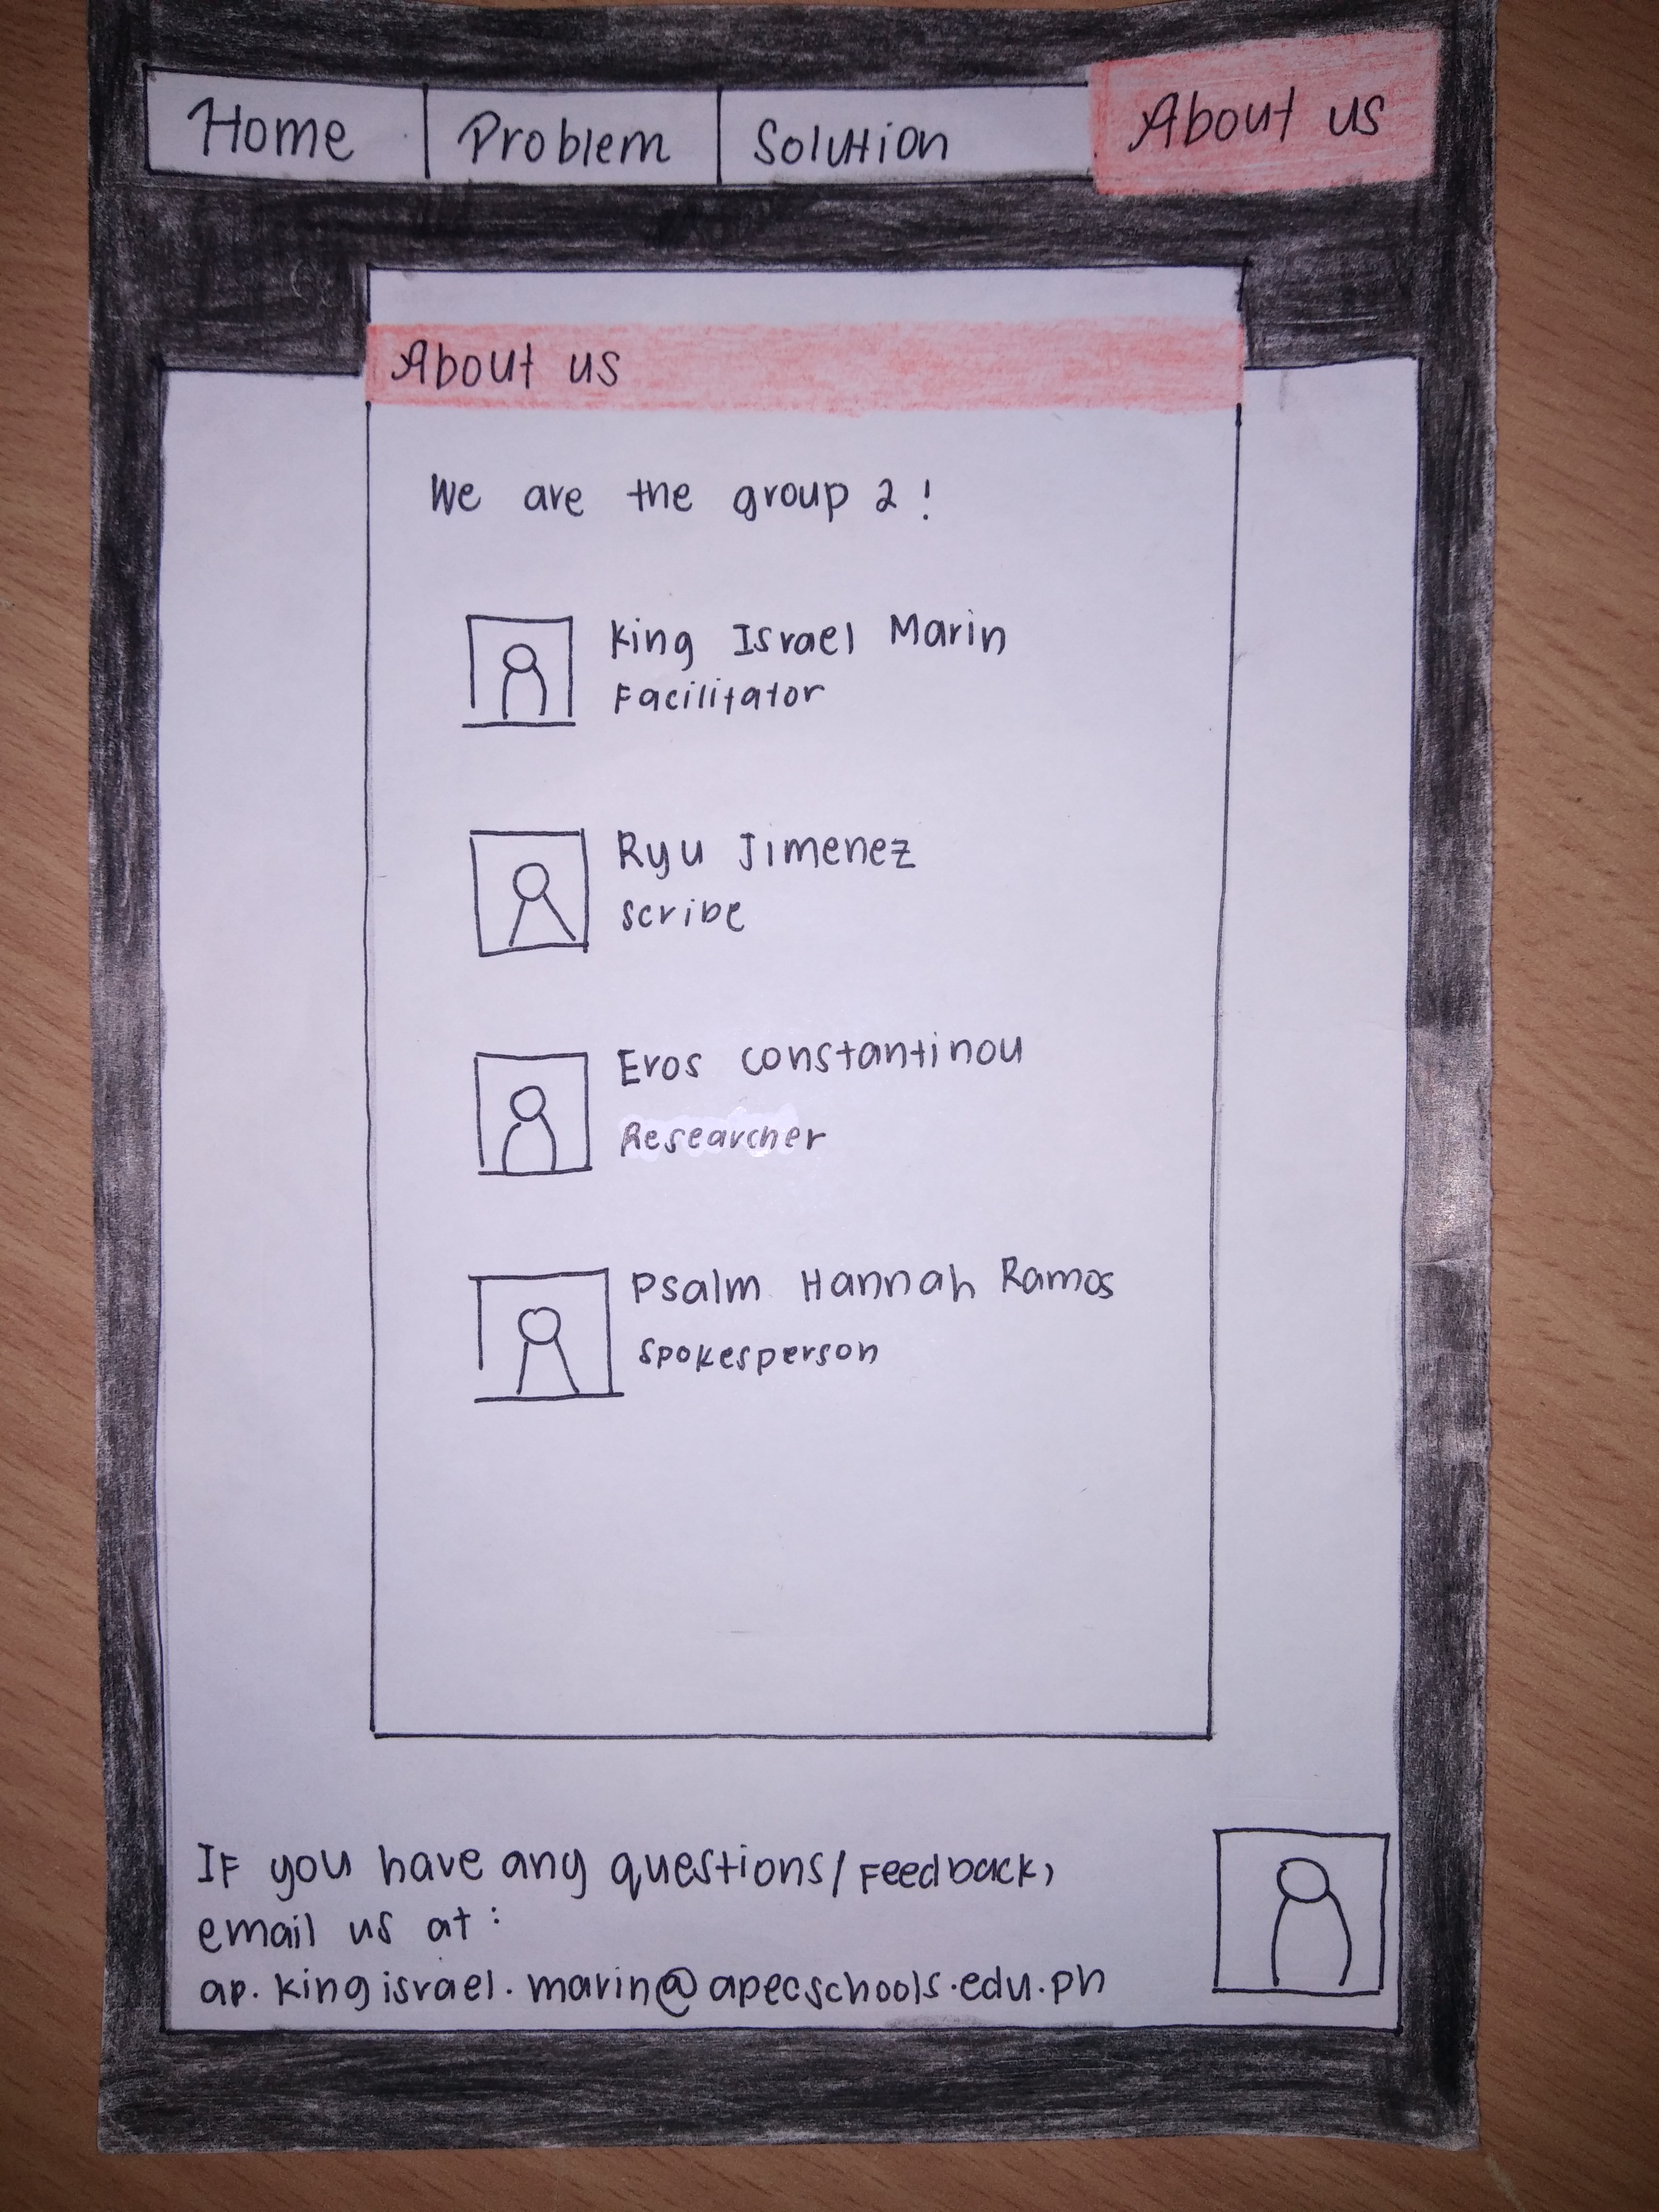 Home
Problem
Solution
About us
About us
We are the group 2!
King Israel Marin
Facilitator
Ryu Jimenez
Scribe
Eros Constantinou
Researcher
Psalm Hannah Ramos
Spokesperson
If you have any questions/Feedback,
email us at:
ap.kingisrael.marin@apecschools.edu.ph